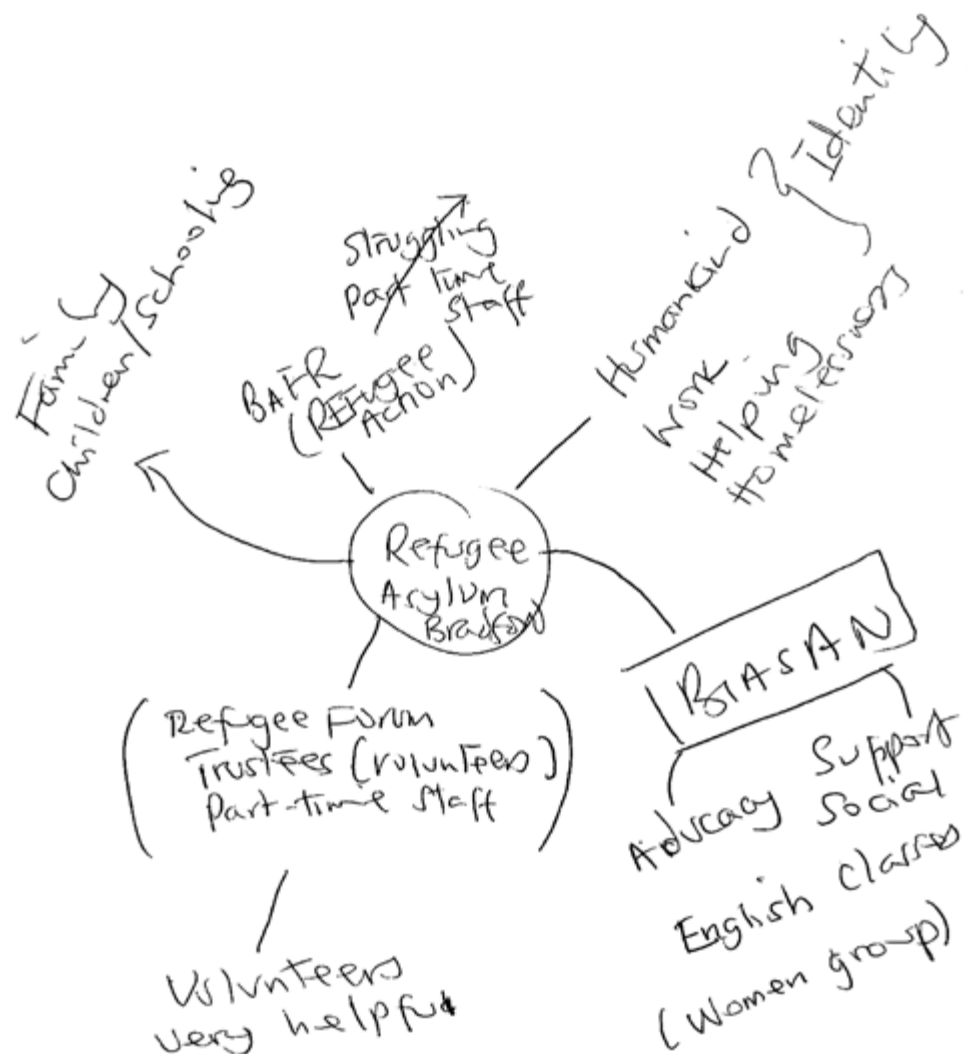 Family
Children/Schooling
Struggling
Part Time
Staff
BAFR
(REfugee
Action)
Humankind
Identity
Work
Helping
Homelessness
Refugee
Asylum
Bradford
BIASAN
Advocacy
Support
Social
English classes
(Women group)
Refugee Forum
Trustees (volunteers)
Part-time staff
Volunteers
very helpful